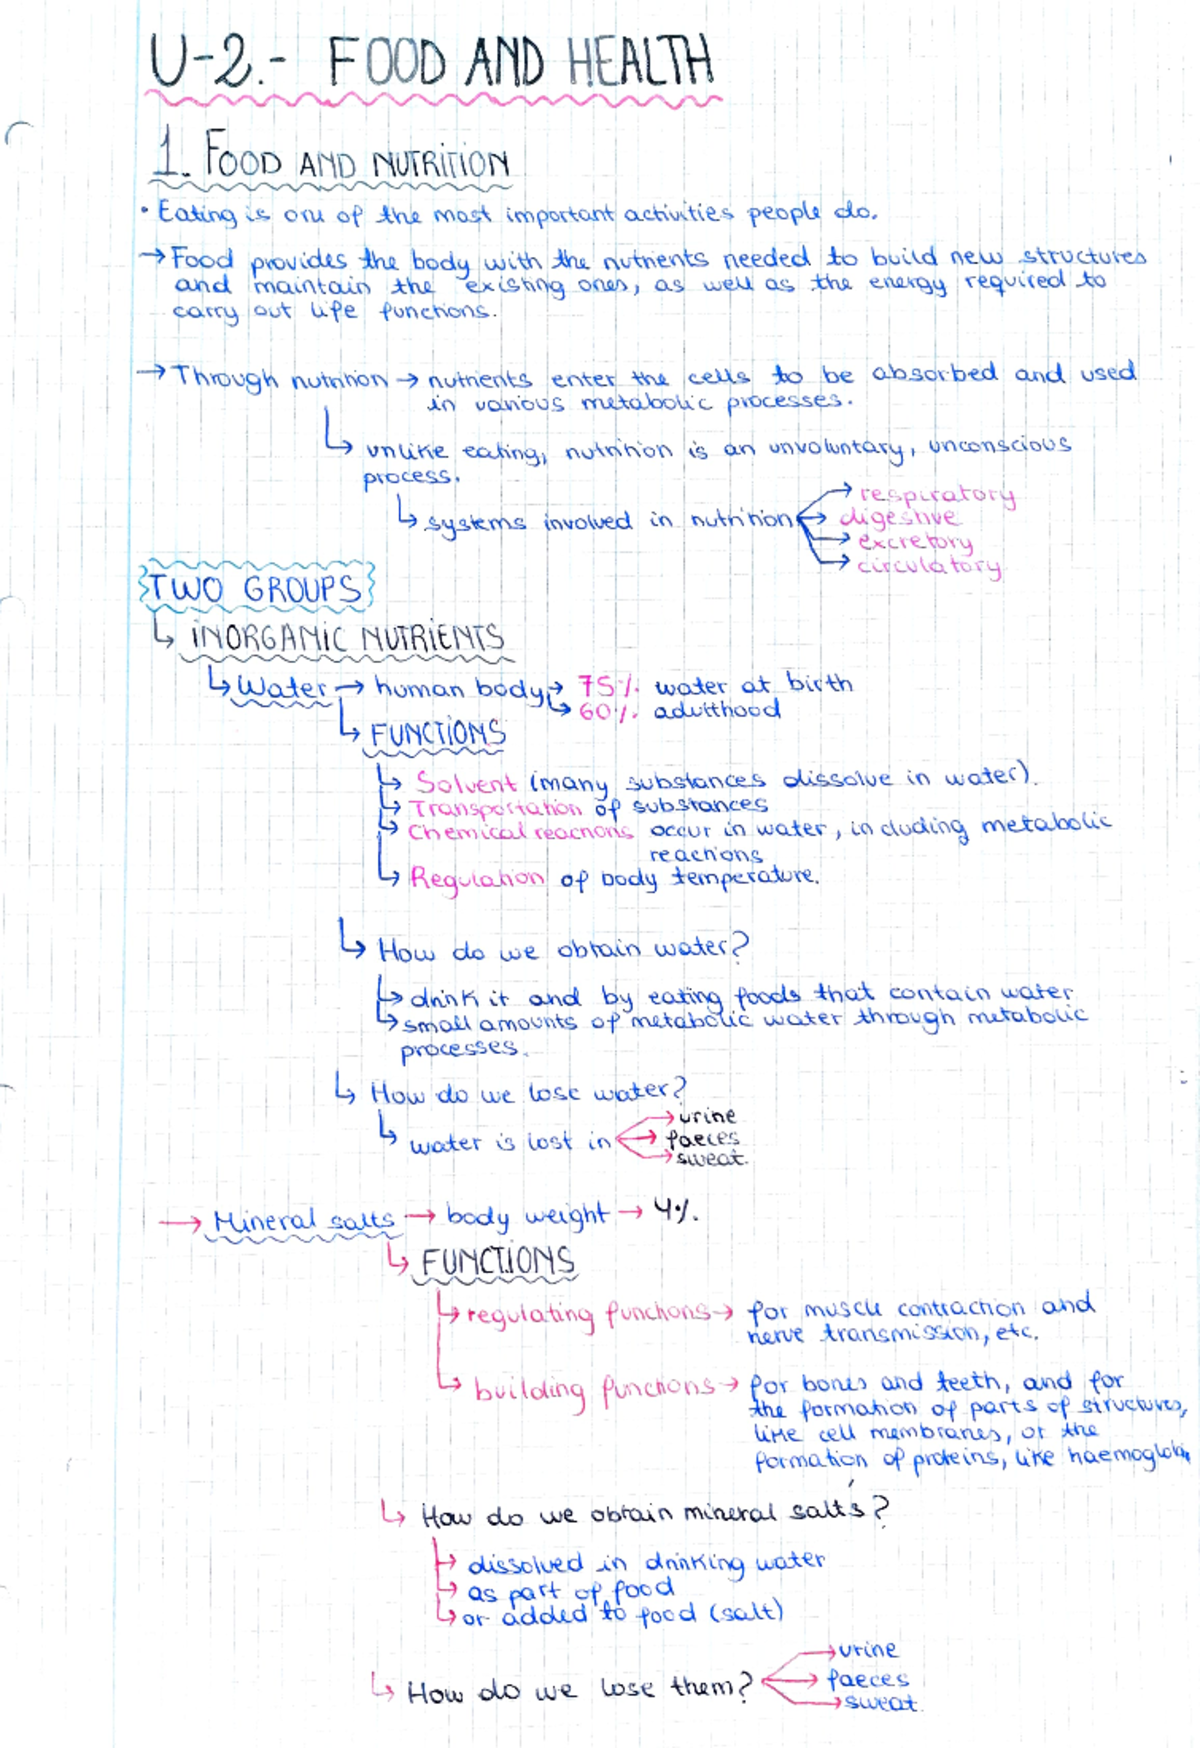 U-2.- FOOD AND HEALTH
1. FOOD AND NUTRITION
• Eating is one of the most important activities people do.
→ Food provides the body with the nutrients needed to build new structures
and maintain the existing ones, as well as the energy required to
carry out life functions.
→ Through nutrition → nutrients enter the cells to be absorbed and used
in various metabolic processes.
↳ unlike eating, nutrition is an unvoluntary, unconscious
process.
↳ systems involved in nutrition → respiratory
→ digestive
→ excretory
→ circulatory
TWO GROUPS
↳ INORGANIC NUTRIENTS
↳ Water → human body → 75% water at birth
↳ 60% adulthood
↳ FUNCTIONS
↳ Solvent (many substances dissolve in water).
↳ Transportation of substances
↳ Chemical reactions occur in water, including metabolic
reactions
↳ Regulation of body temperature.
↳ How do we obtain water?
↳ drink it and by eating foods that contain water
↳ small amounts of metabolic water through metabolic
processes.
↳ How do we lose water?
→ urine
↳ water is lost in → faeces
→ sweat.
→ Mineral salts → body weight → 4%.
↳ FUNCTIONS
↳ regulating functions → for muscle contraction and
nerve transmission, etc.
↳ building functions → for bones and teeth, and for
the formation of parts of structures,
like cell membranes, or the
formation of proteins, like haemoglobin
↳ How do we obtain mineral salts?
↳ dissolved in drinking water
↳ as part of food
↳ or added to food (salt)
→ urine
↳ How do we lose them? → faeces
→ sweat.